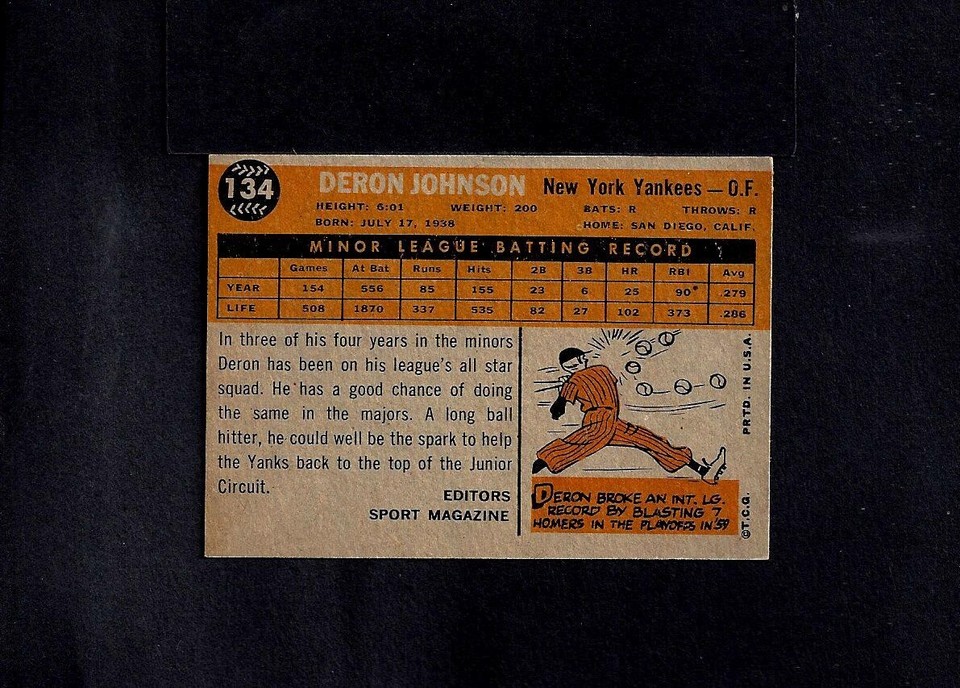 134
DERON JOHNSON New York Yankees — O.F.
HEIGHT: 6:01 WEIGHT: 200 BATS: R THROWS: R
BORN: JULY 17, 1938 HOME: SAN DIEGO, CALIF.
MINOR LEAGUE BATTING RECORD
Games At Bat Runs Hits 2B 3B HR RBI Avg
YEAR 154 556 85 155 23 6 25 90* .279
LIFE 508 1870 337 535 82 27 102 373 .286
In three of his four years in the minors
Deron has been on his league's all star
squad. He has a good chance of doing
the same in the majors. A long ball
hitter, he could well be the spark to help
the Yanks back to the top of the Junior
Circuit.
EDITORS
SPORT MAGAZINE
DERON BROKE AN INT. LG.
RECORD BY BLASTING 7
HOMERS IN THE PLAYOFFS IN '59
©T.C.G. PRTD. IN U.S.A.